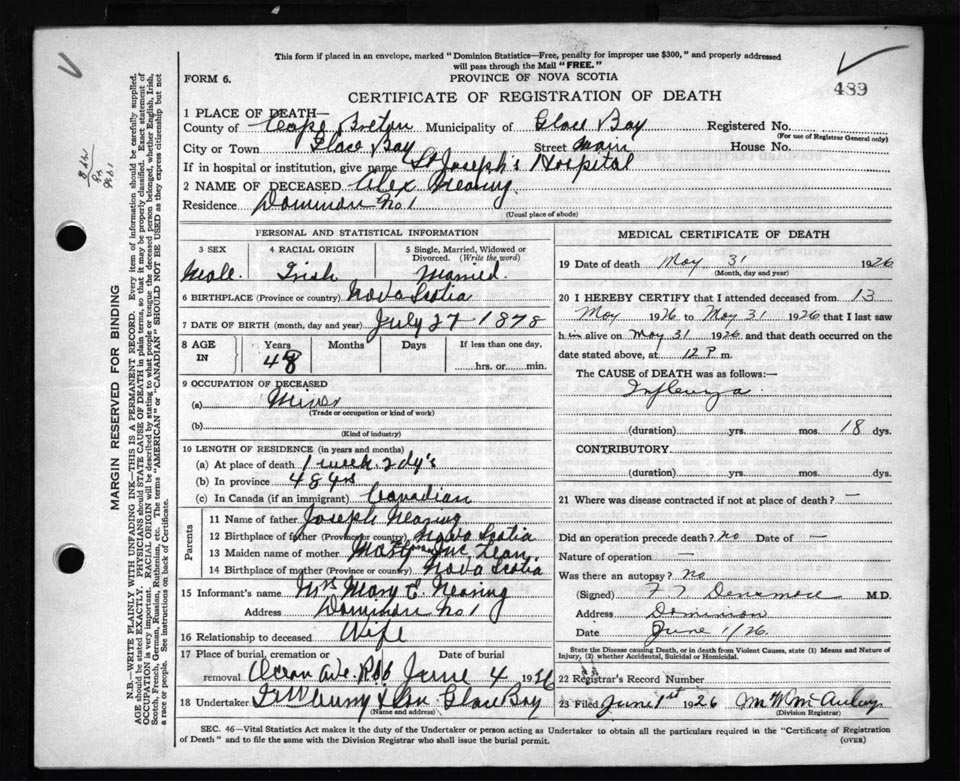 This form if placed in an envelope, marked "Dominion Statistics—Free, penalty for improper use $300," and properly addressed
will pass through the Mail "FREE."
FORM 6.
PROVINCE OF NOVA SCOTIA
489
CERTIFICATE OF REGISTRATION OF DEATH
1 PLACE OF DEATH—
County of Cape Breton Municipality of Glace Bay Registered No.
(For use of Registrar General only)
City or Town Glace Bay Street Main House No.
If in hospital or institution, give name St Joseph's Hospital
2 NAME OF DECEASED Alex Nearing
Residence Dominion No 1
(Usual place of abode)
PERSONAL AND STATISTICAL INFORMATION
3 SEX 4 RACIAL ORIGIN 5 Single, Married, Widowed or Divorced. (Write the word)
Male. Irish Married.
6 BIRTHPLACE (Province or country) Nova Scotia
7 DATE OF BIRTH (month, day and year) July 27 1878
8 AGE IN Years Months Days If less than one day,
48 hrs. or min.
9 OCCUPATION OF DECEASED
(a) Miner
(Trade or occupation or kind of work)
(b)
(Kind of industry)
10 LENGTH OF RESIDENCE (in years and months)
(a) At place of death 1 week 2 dy's
(b) In province 48 yrs
(c) In Canada (if an immigrant) Canadian
Parents
11 Name of father Joseph Nearing
12 Birthplace of father (Province or country) Nova Scotia
13 Maiden name of mother Mc Lean.
14 Birthplace of mother (Province or country) Nova Scotia
15 Informant's name Mrs Mary E. Nearing
Address Dominion No 1
16 Relationship to deceased Wife
17 Place of burial, cremation or Date of burial
removal Ocean Ave June 4 1926
18 Undertaker & Son Glace Bay
(Name and address)
MEDICAL CERTIFICATE OF DEATH
19 Date of death May 31 1926
(Month, day and year)
20 I HEREBY CERTIFY that I attended deceased from 13
May 1926 to May 31 1926 that I last saw
h im alive on May 31 1926 and that death occurred on the
date stated above, at 12 P. m.
The CAUSE of DEATH was as follows:—
Influenza.
(duration) yrs. mos. 18 dys.
CONTRIBUTORY.
(duration) yrs. mos. dys.
21 Where was disease contracted if not at place of death? —
Did an operation precede death? no Date of —
Nature of operation —
Was there an autopsy? No
(Signed) Densmore M.D.
Address Dominion
Date June 1/26.
State the Disease causing Death, or in death from Violent Causes, state (1) Means and Nature of
Injury, (2) whether Accidental, Suicidal or Homicidal.
22 Registrar's Record Number
23 Filed June 1st 1926
(Division Registrar)
SEC. 46—Vital Statistics Act makes it the duty of the Undertaker or person acting as Undertaker to obtain all the particulars required in the "Certificate of Registration
of Death" and to file the same with the Division Registrar who shall issue the burial permit. (OVER)
MARGIN RESERVED FOR BINDING
N.B.—WRITE PLAINLY WITH UNFADING INK—THIS IS A PERMANENT RECORD. Every item of information should be carefully supplied.
AGE should be stated EXACTLY. PHYSICIANS should STATE CAUSE OF DEATH in plain terms, so that it may be properly classified. Exact statement of
OCCUPATION is very important. RACIAL ORIGIN will be described by stating to what people or tongue the deceased person belonged, whether English, Irish,
Scotch, French, German, Russian, Ruthenian, etc. The terms "AMERICAN" or "CANADIAN" SHOULD NOT BE USED as they express citizenship but not
a race or people. See instructions on back of Certificate.